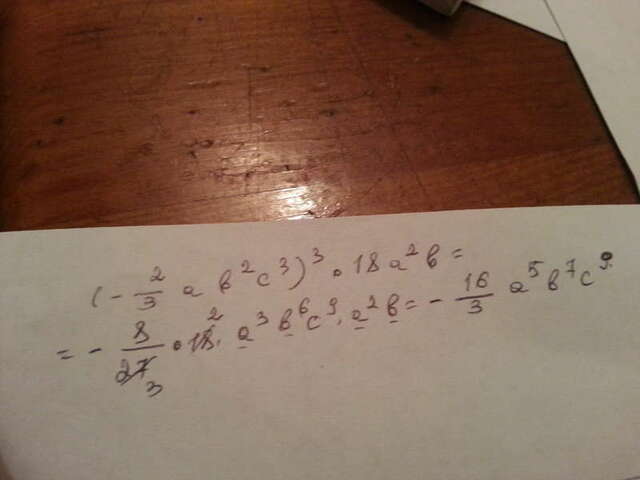 (-2/3 a b²c³)³ • 18 a²b =
= - 8/27 3 • 18 2 · a³ b⁶ c⁹ · a² b = - 16/3 a⁵ b⁷ c⁹.